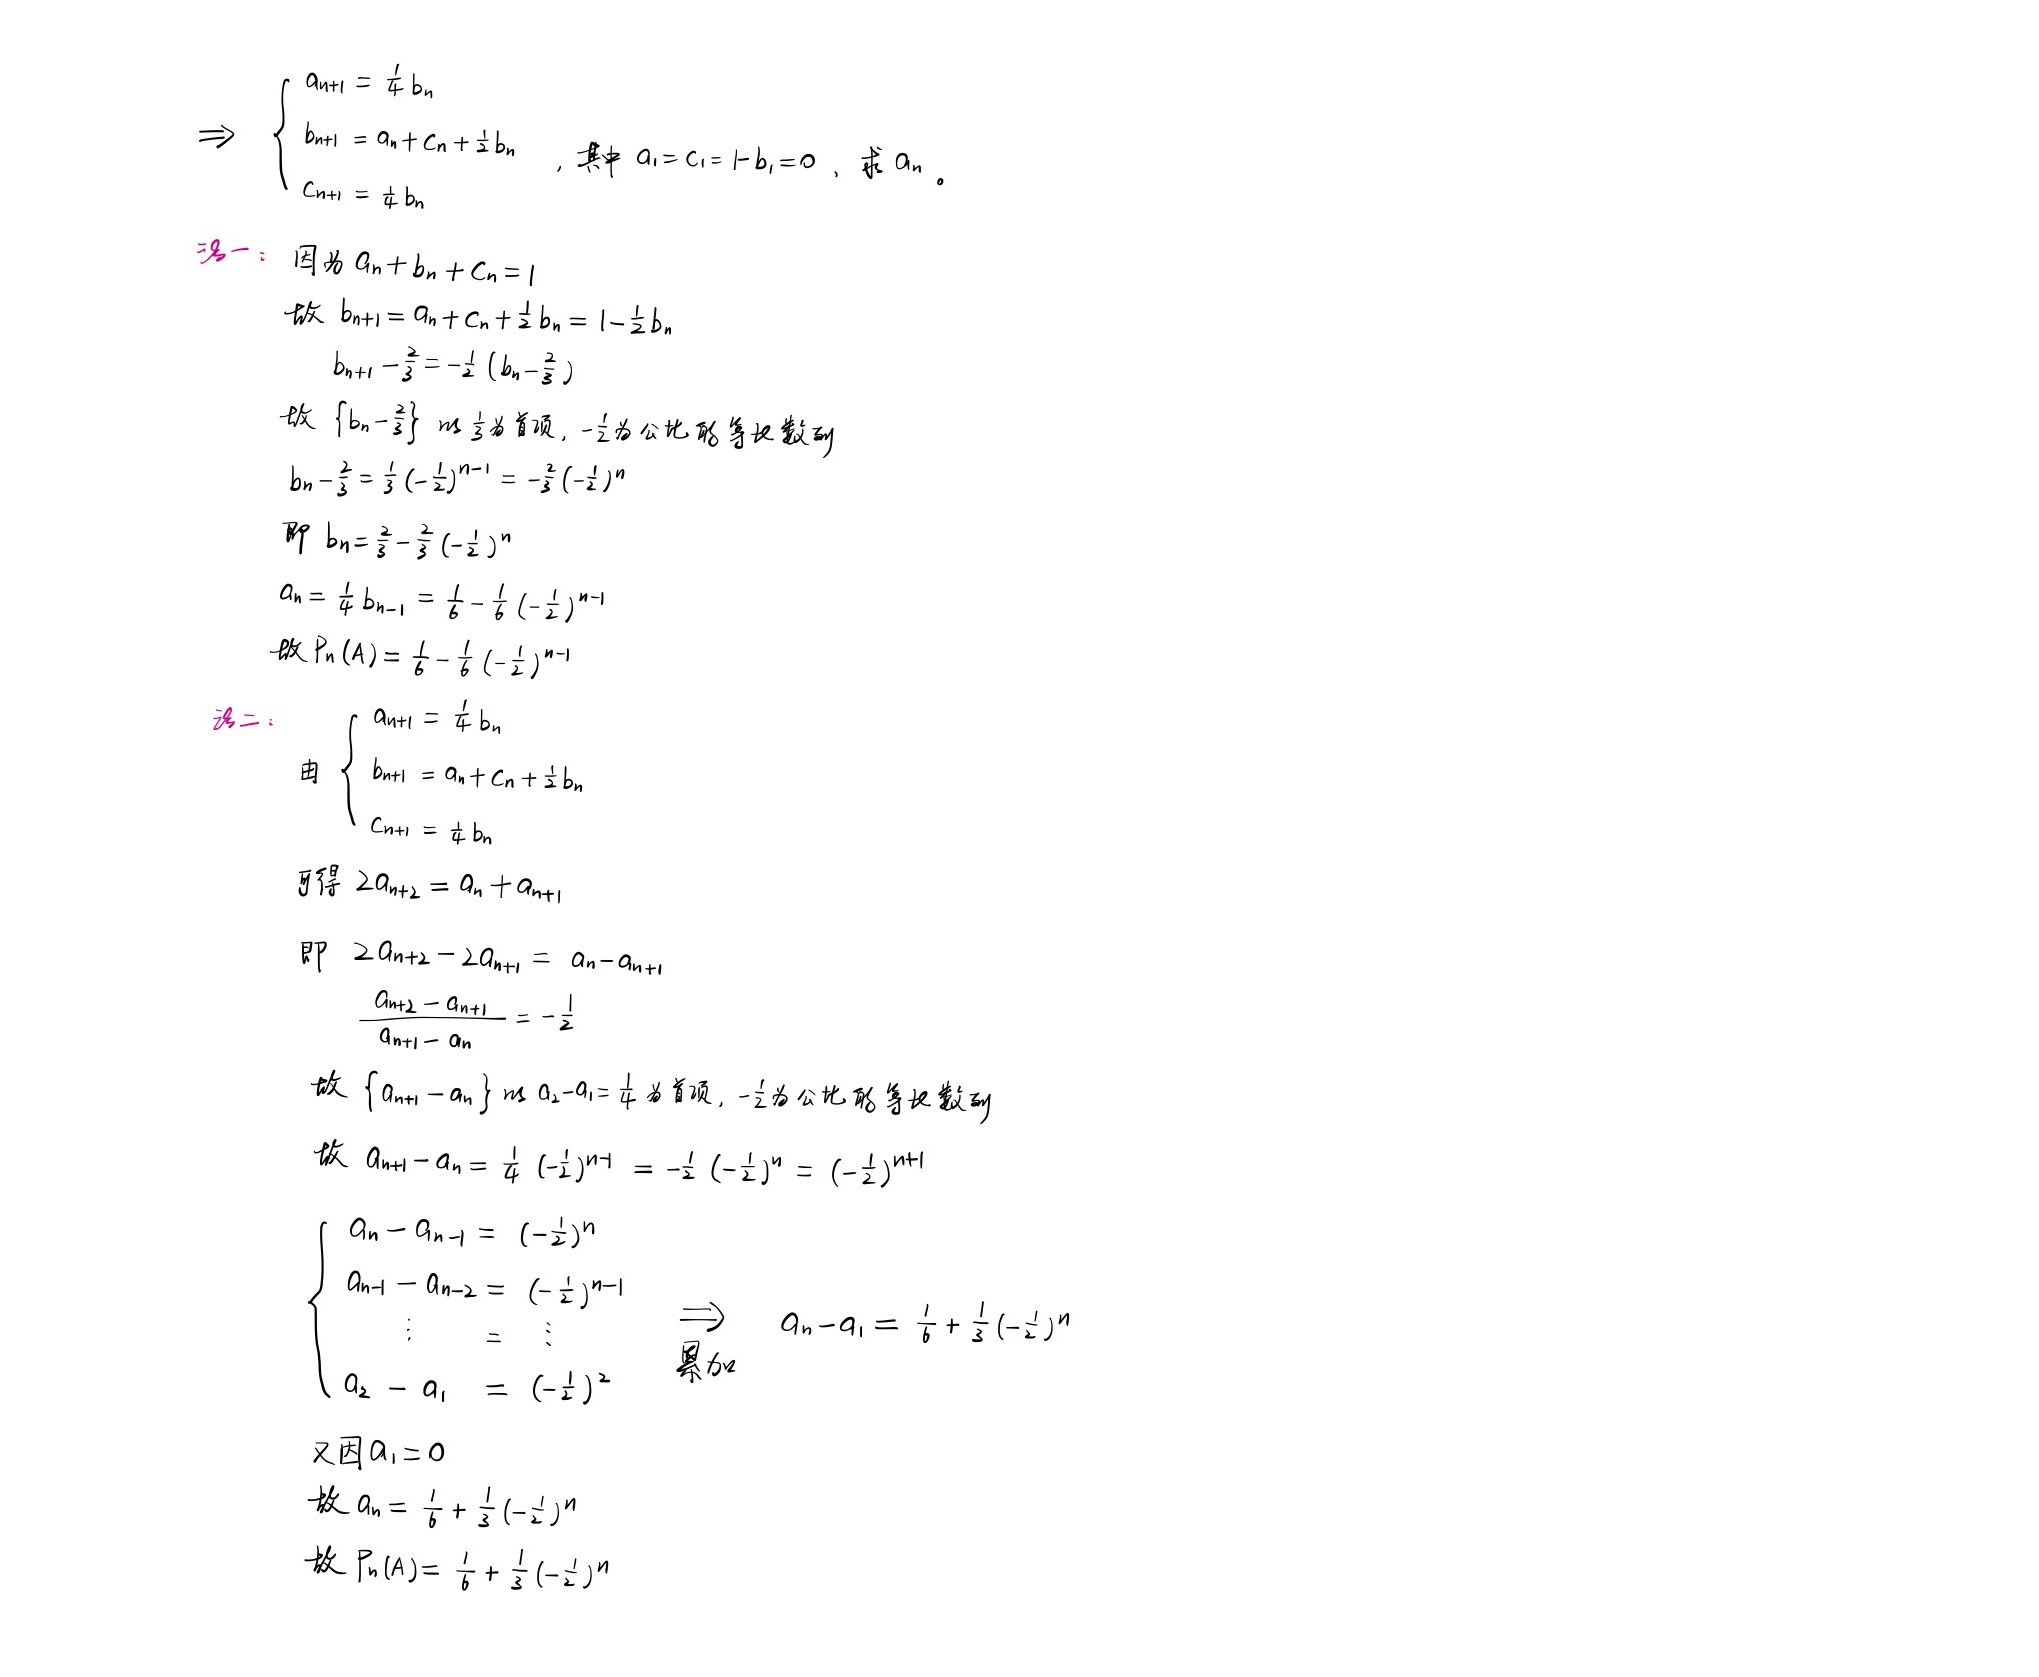 ⇒ { aₙ₊₁ = 1/4 bₙ
bₙ₊₁ = aₙ + cₙ + 1/2 bₙ , 其中 a₁ = c₁ = 1 - b₁ = 0 , 求 aₙ 。
cₙ₊₁ = 1/4 bₙ
法一: 因为 aₙ + bₙ + cₙ = 1
故 bₙ₊₁ = aₙ + cₙ + 1/2 bₙ = 1 - 1/2 bₙ
bₙ₊₁ - 2/3 = -1/2 (bₙ - 2/3)
故 {bₙ - 2/3} 以 1/3 为首项, -1/2 为公比的等比数列
bₙ - 2/3 = 1/3 (-1/2)ⁿ⁻¹ = -2/3 (-1/2)ⁿ
即 bₙ = 2/3 - 2/3 (-1/2)ⁿ
aₙ = 1/4 bₙ₋₁ = 1/6 - 1/6 (-1/2)ⁿ⁻¹
故 Pₙ(A) = 1/6 - 1/6 (-1/2)ⁿ⁻¹
法二:
由 { aₙ₊₁ = 1/4 bₙ
bₙ₊₁ = aₙ + cₙ + 1/2 bₙ
cₙ₊₁ = 1/4 bₙ
可得 2aₙ₊₂ = aₙ + aₙ₊₁
即 2aₙ₊₂ - 2aₙ₊₁ = aₙ - aₙ₊₁
(aₙ₊₂ - aₙ₊₁)/(aₙ₊₁ - aₙ) = -1/2
故 {aₙ₊₁ - aₙ} 以 a₂ - a₁ = 1/4 为首项, -1/2 为公比的等比数列
故 aₙ₊₁ - aₙ = 1/4 (-1/2)ⁿ⁻¹ = -1/2 (-1/2)ⁿ = (-1/2)ⁿ⁺¹
{ aₙ - aₙ₋₁ = (-1/2)ⁿ
aₙ₋₁ - aₙ₋₂ = (-1/2)ⁿ⁻¹
⋮ = ⋮
a₂ - a₁ = (-1/2)²
⇒ 累加 aₙ - a₁ = 1/6 + 1/3 (-1/2)ⁿ
又因 a₁ = 0
故 aₙ = 1/6 + 1/3 (-1/2)ⁿ
故 Pₙ(A) = 1/6 + 1/3 (-1/2)ⁿ